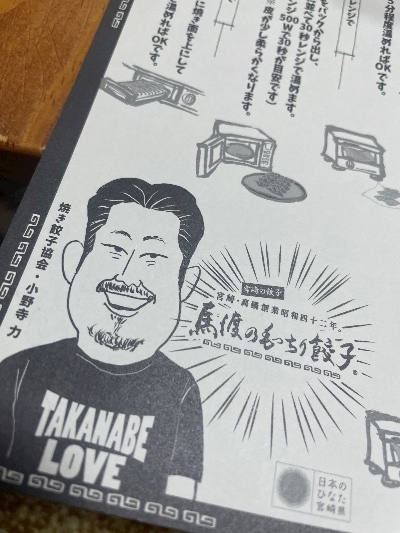 分程度温めればOKです。
レンジで
をパックから出し、
並べて30秒レンジで温めます。
ンジ500Wで30秒が目安です)
※ 皮が少し柔らかくなります。
に焼き面を上にして
温めればOKです。
焼き餃子協会・小野寺 力
宮崎の餃子
宮崎・高鍋創業昭和四十二年。
馬渡のもっちり餃子。
TAKANABE
LOVE
日本の
ひなた
宮崎県